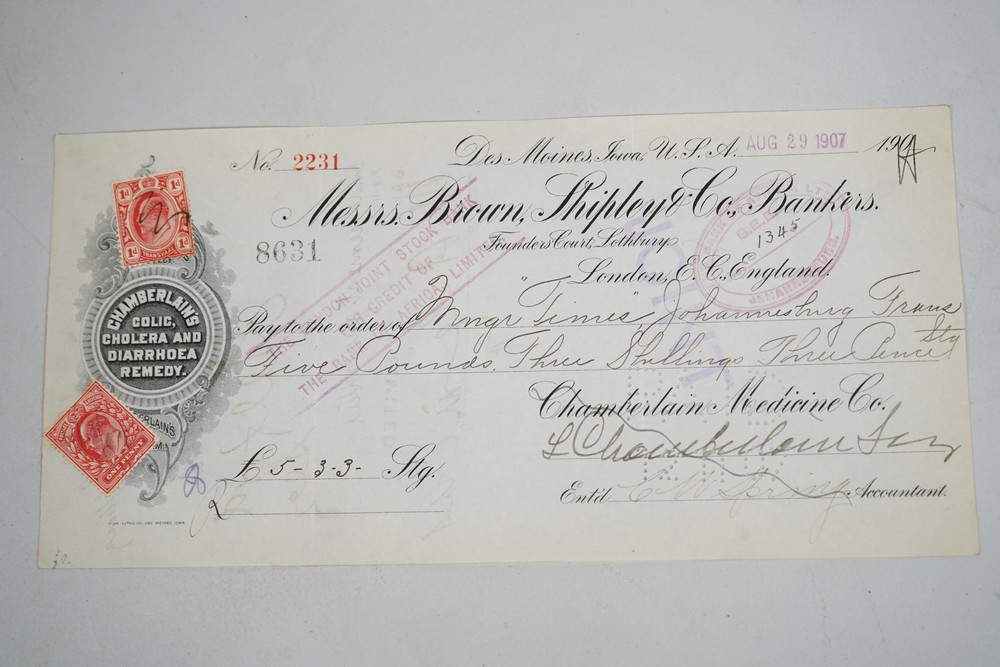 No. 2231
Des Moines, Iowa, U.S.A. AUG 29 1907 190
Messrs. Brown, Shipley & Co., Bankers.
8631
Founders Court, Lothbury
London, E.C., England.
1345
JOHANNESBURG.
LONDON JOINT STOCK BANK
FOR CREDIT OF
THE BANK AFRICA LIMITED
Pay to the order of Mngr Times, Johannesburg Trans
Five Pounds. Three Shillings Three Pence Stg
Chamberlain Medicine Co.
L Chamberlain
£ 5-3-3- Stg.
Ent'd C W Spring Accountant.
1d 1d
1d TRANSVAAL 1d
CHAMBERLAIN'S
COLIC,
CHOLERA AND
DIARRHOEA
REMEDY.
ONE PENNY